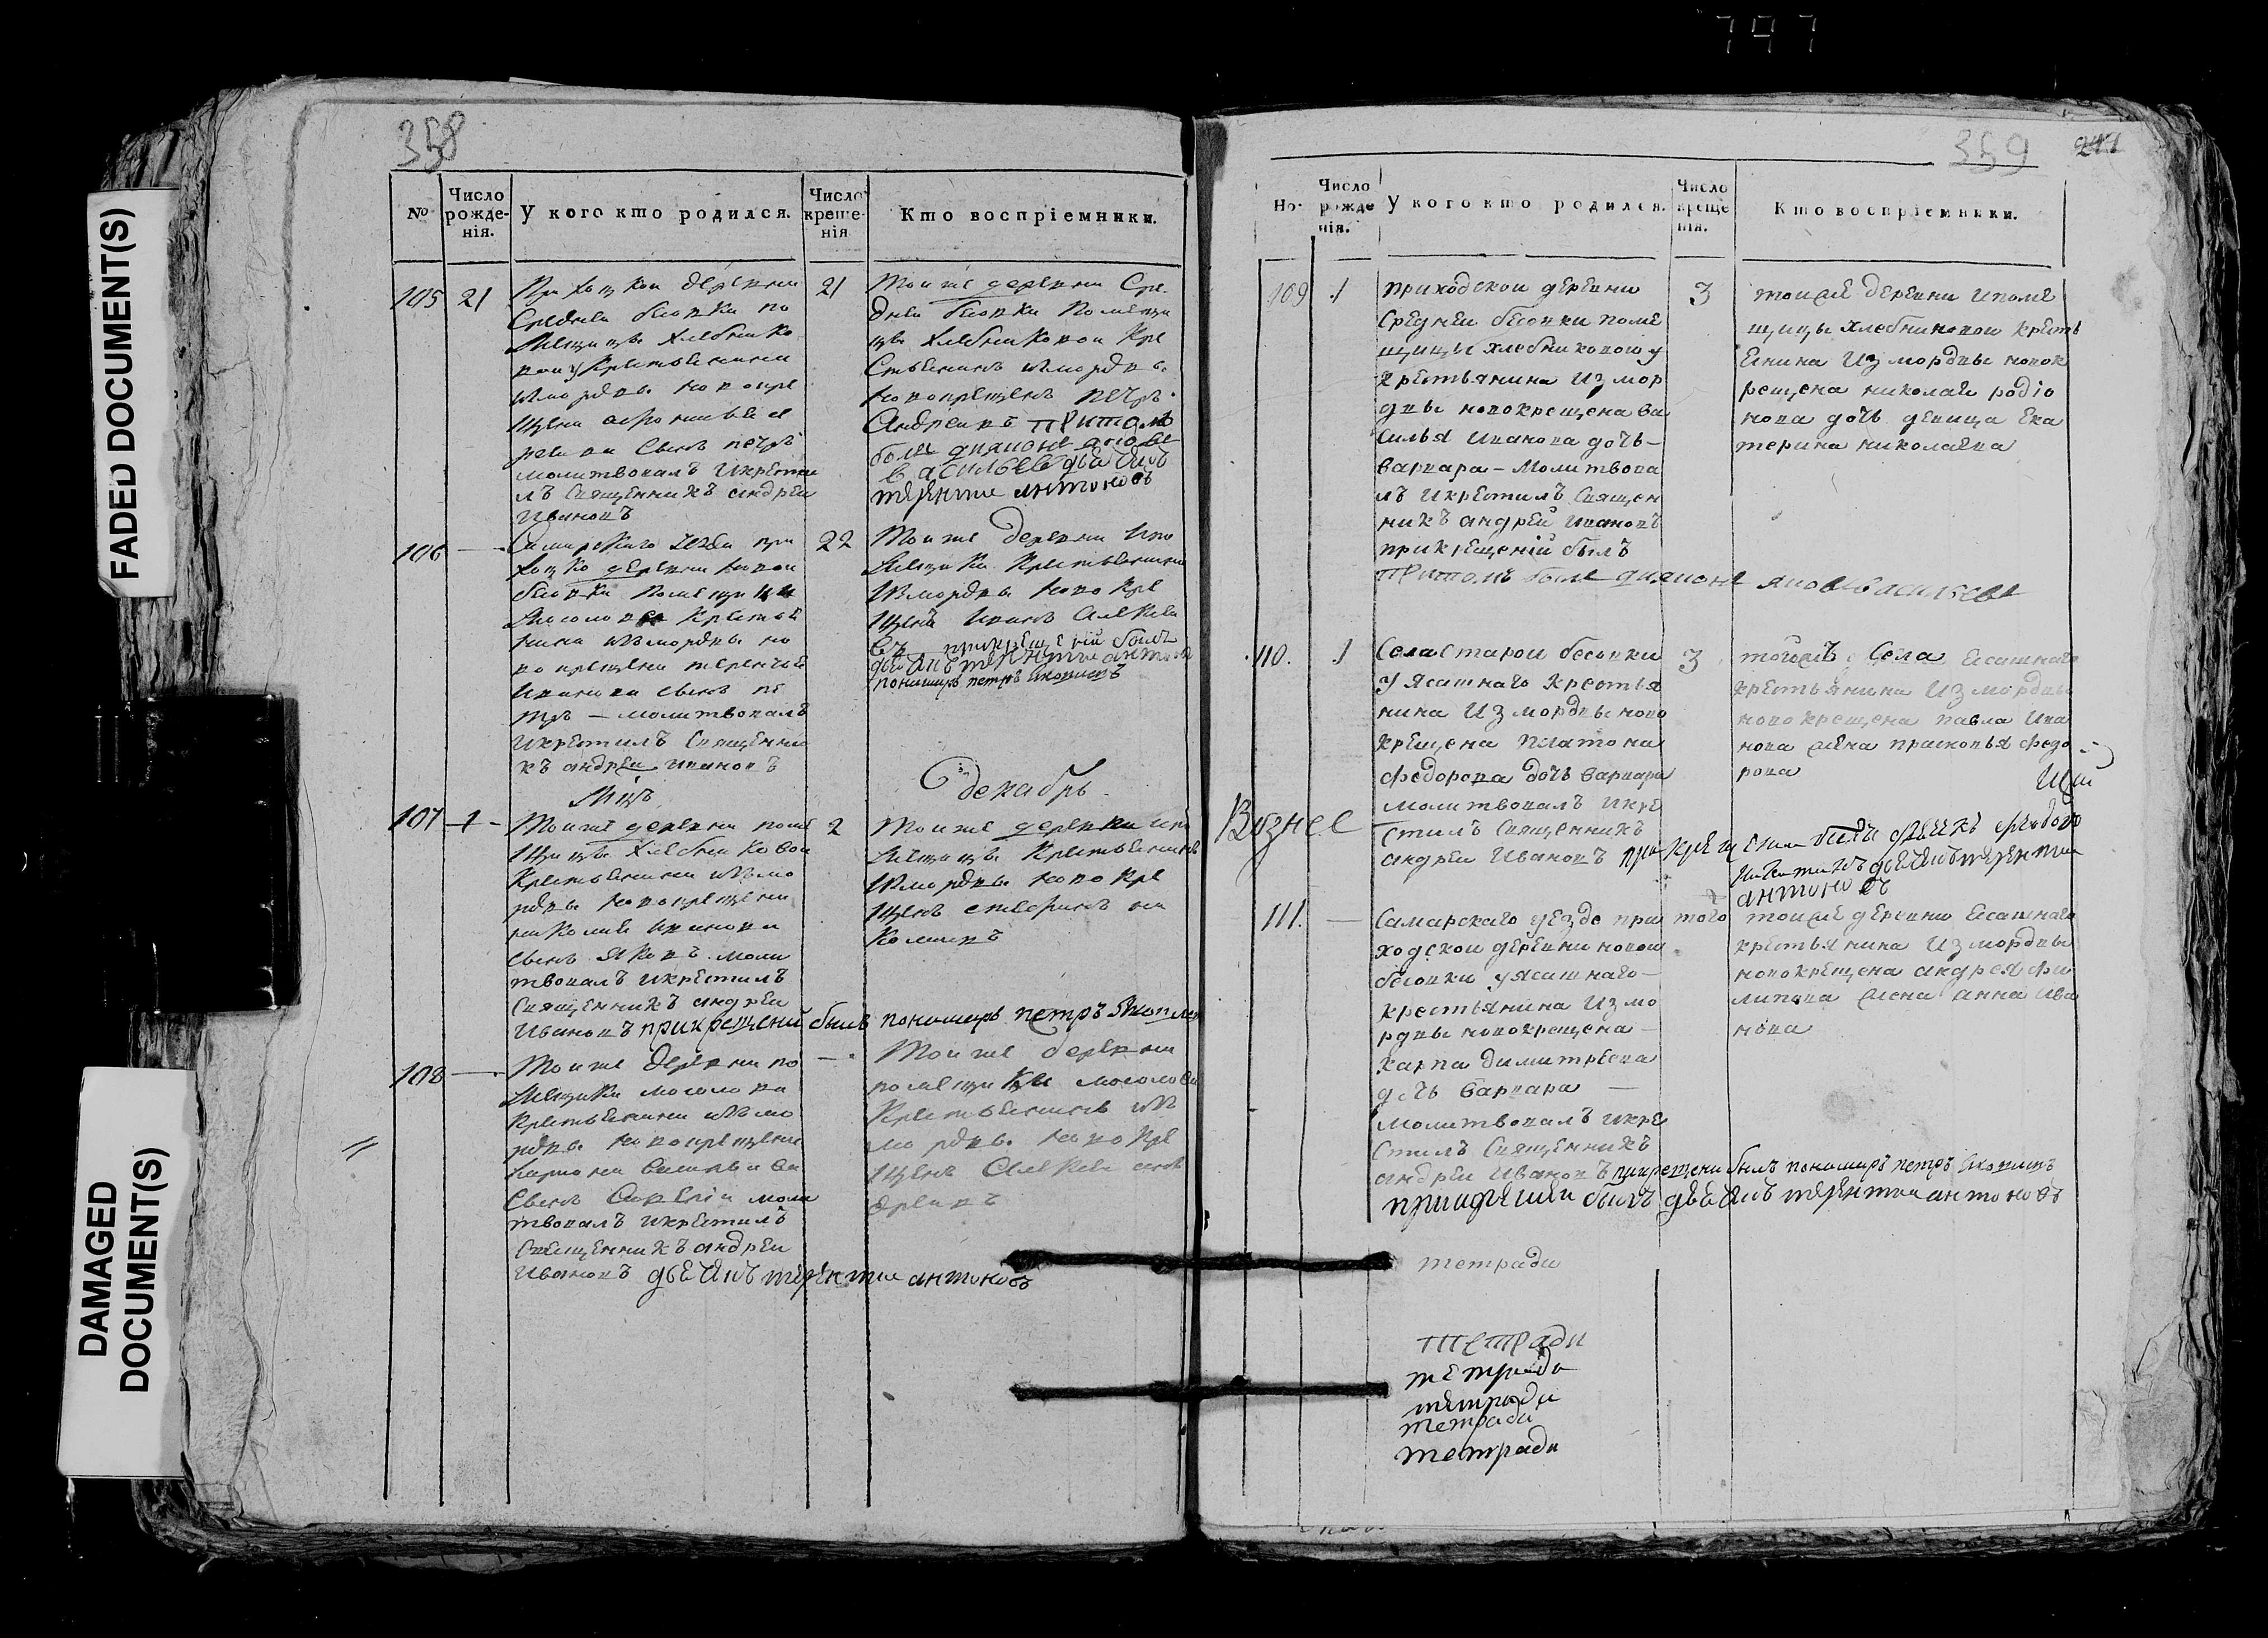 747
FADED DOCUMENT(S)
DAMAGED DOCUMENT(S)
358
№
Число рожде-нія.
У кого кто родился.
Число креще-нія
Кто воспріемники.
105 21
деревни
Средней бесовки по
мещицы Хлебнико
вой у крестьянина
из мордвы новокре
щена
сынъ петръ
молитвовалъ Икрести
лъ Священникъ андреи
Ивановъ
21
Тоиже деревни Сре
дней бесовки Помещи
цы Хлебниковой Кре
стьянинъ измордвы
новокрещенъ петръ
Андреивъ притомъ
былъ диаконе яковъ
василевъ дьячекъ
терентии антоновъ
106
Самарскаго при
деревни новой
бесовки Помещика
Мосолова Крестья
нина измордвы но
вокрещена терентья
Иванова сынъ пе
тръ — молитвовалъ
Икрестилъ Священни
къ андреи ивановъ
22
Тоиже деревни Ипо
мещика Крестьянинъ
Измордвы новокре
щенъ Иванъ Алексеи
въ прикрещеніи былъ
дьячекъ терентии антонов
пономарь петръ яковлевъ
Мцъ декабрь
107 1
Тоиже деревни поме
щицы Хлебниковой
Крестьянина измо
рдвы новокрещена
николая иванова
сынъ яковъ моли
твовалъ икрестилъ
Священникъ андреи
Ивановъ прикрещеніи былъ пономарь петръ Яковлев
2
Тоиже деревни ипо
мещицы Крестьянинъ
Измордвы новокре
щенъ
108
Тоиже деревни по
мещика мосолова
Крестьянина измо
рдвы новокрещена
сынъ моли
твовалъ икрестилъ
Священникъ андреи
Ивановъ дьячекъ терентии антоновъ
Тоиже деревни
помещика мосолова
Крестьянинъ из
мордвы новокре
щенъ Алексеи анъ
дреивъ
359
247
Но.
Число рожде нія.
У кого кто родился.
Число креще нія.
Кто воспріемники.
109 1
приходской деревни
Средней бесовки поме
щицы хлебниковой у
крестьянина Из мор
двы новокрещена ва
силья Иванова дочь —
варвара — Молитвова
лъ Икрестилъ Священ
никъ андреи Ивановъ
прикрещеніи былъ
притомъ былъ диаконе яковъ василевъ
3
тоиже деревни Ипоме
щицы хлебниковой кресть
янина Из мордвы новок
рещена николая родіо
нова дочь девица Ека
терина николаева
110. 1
Села Старой бесовки
у Ясашнаго крестья
нина Из мордвы ново
крещена Платона
федорова дочь варвара
молитвовалъ Икре
стилъ Священникъ
андреи Ивановъ
3
тогожъ Села Ясашнаго
крестьянина Из мордвы
новокрещена павла Ива
нова жена прасковья федо
рова
111.
Самарскаго уезда при
ходской деревни новой
бесовки у ясашнаго —
крестьянина Из мо
рдвы новокрещена —
карпа димитреева
дочь варвара —
молитвовалъ Икре
стилъ Священникъ
андреи Ивановъ прикрещеніи былъ пономарь петръ яковлевъ
дьячекъ терентии антоновъ
того
тоиже деревни Ясашнаго
крестьянина Из мордвы
новокрещена андрея фи
липова жена анна ива
нова
тетради
тетради
тетради
тетради
тетради
тетради